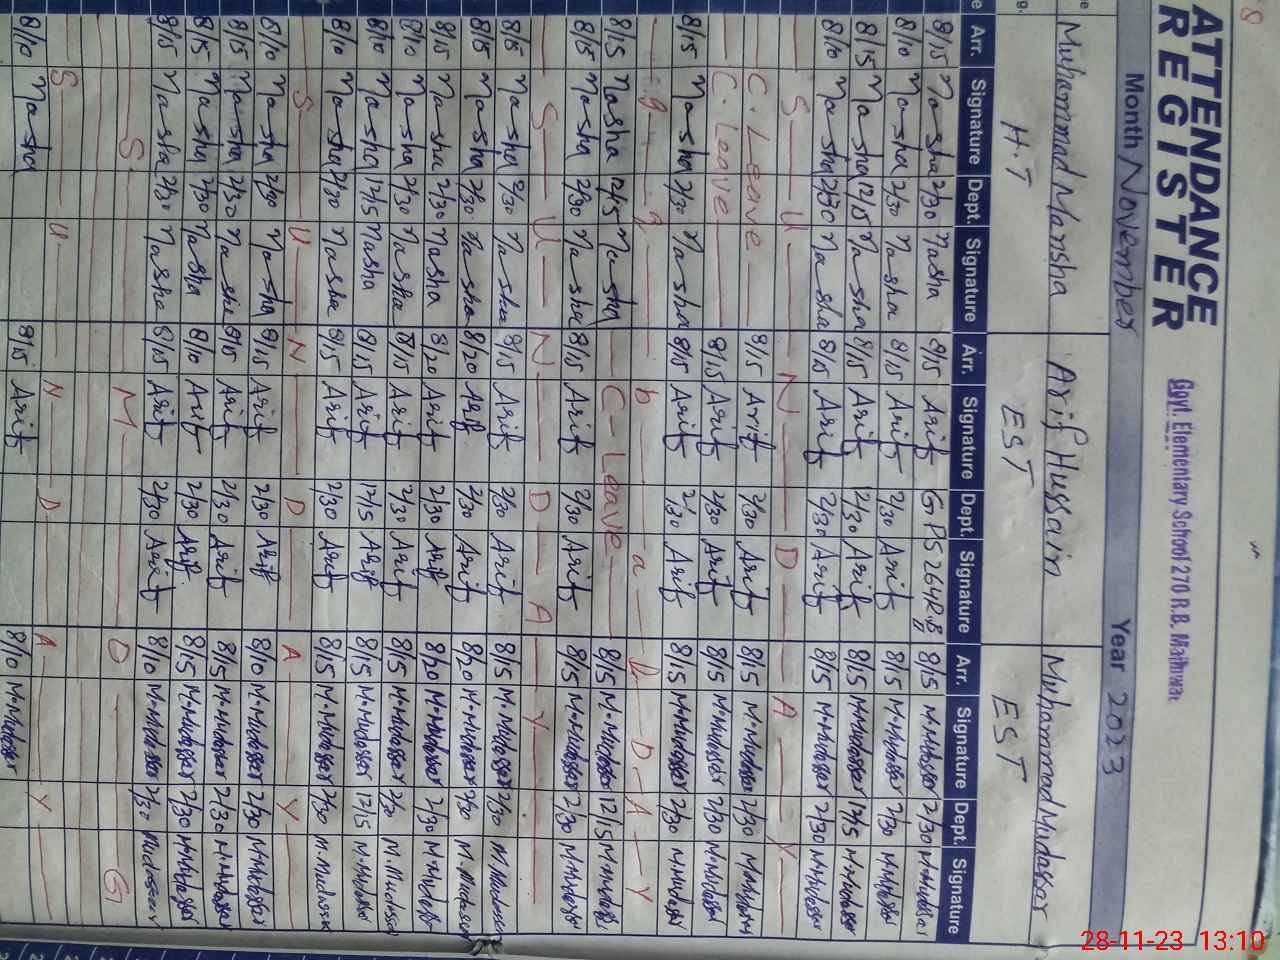 8
ATTENDANCE
REGISTER
Govt. Elementary School 270 R.B.
Month November Year 2023
Muhammad Mansha Arif Hussain Muhammad Mudassar
H.T EST EST
Arr. Signature Dept. Signature Arr. Signature Dept. Signature Arr. Signature Dept. Signature
8/15 Masha 2/30 Masha 8/15 Arif GPS 264RB 8/15 M.Mudassar 2/30 M.Mudassar
8/10 Masha 2/30 Masha 8/15 Arif 2/30 Arif 8/15 M.Mudassar 2/30 M.Mudassar
8/15 Masha 12/15 Masha 8/15 Arif 12/30 Arif 8/15 M.Mudassar 12/15 M.Mudassar
8/10 Masha 2/30 Masha 8/15 Arif 2/30 Arif 8/15 M.Mudassar 2/30 M.Mudassar
S U N D A Y
C. Leave 8/15 Arif 2/30 Arif 8/15 M.Mudassar 2/30 M.Mudassar
C. Leave 8/15 Arif 2/30 Arif 8/15 M.Mudassar 2/30 M.Mudassar
8/15 Masha 2/30 Masha 8/15 Arif 2/30 Arif 8/15 M.Mudassar 2/30 M.Mudassar
b a l D A Y
8/15 Masha 12/15 Masha C-Leave 8/15 M.Mudassar 12/15 M.Mudassar
8/15 Masha 2/30 Masha 8/15 Arif 2/30 Arif 8/15 M.Mudassar 2/30 M.Mudassar
S U N D A Y
8/15 Masha 2/30 Masha 8/15 Arif 2/30 Arif 8/15 M.Mudassar 2/30 M.Mudassar
8/15 Masha 2/30 Masha 8/20 Arif 2/30 Arif 8/20 M.Mudassar 2/30 M.Mudassar
8/15 Masha 2/30 Masha 8/20 Arif 2/30 Arif 8/20 M.Mudassar 2/30 M.Mudassar
8/10 Masha 2/30 Masha 8/15 Arif 2/30 Arif 8/15 M.Mudassar 2/30 M.Mudassar
8/10 Masha 12/15 Masha 8/15 Arif 12/15 Arif 8/15 M.Mudassar 12/15 M.Mudassar
8/10 Masha 2/30 Masha 8/15 Arif 2/30 Arif 8/15 M.Mudassar 2/30 M.Mudassar
S U N D A Y
8/10 Masha 2/30 Masha 8/15 Arif 2/30 Arif 8/10 M.Mudassar 2/30 M.Mudassar
8/15 Masha 2/30 Masha 8/15 Arif 2/30 Arif 8/15 M.Mudassar 2/30 M.Mudassar
8/15 Masha 2/30 Masha 8/10 Arif 2/30 Arif 8/15 M.Mudassar 2/30 M.Mudassar
8/15 Masha 2/30 Masha 8/15 Arif 2/30 Arif 8/10 M.Mudassar 2/30 Mudassar
S M O G
S U N D A Y
8/10 Masha 8/15 Arif 8/10 M.Mudassar
28-11-23 13:10